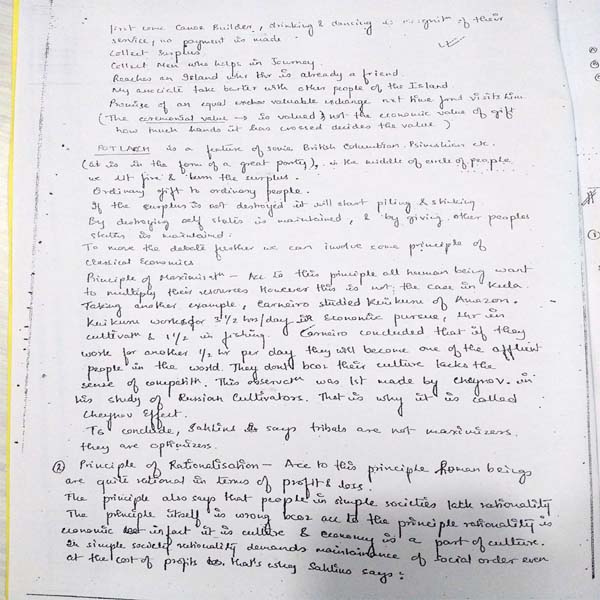 first come Canoe Builder, drinking & dancing is recognitn of their
service, no payment is made
Collect Surplus.
Collect Men who helps in Journey.
Reaches an Island whr thr is already a friend.
My associate take barter with other people of the Island.
Promise of an equal valuable exchange next time frnd visits him
(The ceremonial value → is valued & not the economic value of gift
how much hands it has crossed decides the value)
POTLACH is a feature of some British Columbian. Tsimshian etc.
(it is in the form of a great party), in the middle of circle of people
we lit fire & burn the surplus.
Ordinary gift to ordinary people.
If the surplus is not destroyed it will start piling & stinking
By destroying self status is maintained, & by giving other peoples
status is maintained.
To move the debate further we can involve some principle of
Classical Economics
Principle of Maximisatn - Acc to this pinciple all human being want
to multiply their resources However this is not the case in Kula.
Taking another example, Carneiro studied Kuikuru of Amazon.
Kuikuru works for 3 1/2 hrs/day in Economic pursue, 2hr in
cultivatn & 1 1/2 in fishing. Carneiro concluded that if they
work for another 1/2 hr per day they will become one of the afflient
people in the world. They dont bcoz their culture lacks the
sense of competitn. This observatn was 1st made by Chaynov. in
his study of Russian Cultivators. That is why it is called
Chaynov Effect.
To conclude, Sahlins says tribals are not maximizers
they are optimizers.
② Principle of Rationalisation - Acc to this principle human beings
are quite rational in terms of profit & loss.
The principle also says that people in simple societies lack rationality
The principle itself is wrong bcoz acc to the principle rationality is
economic but infact it is culture & economy is a part of culture.
in simple society rationality demands maintainance of social order even
at the cost of profits that's why Sahlins says: